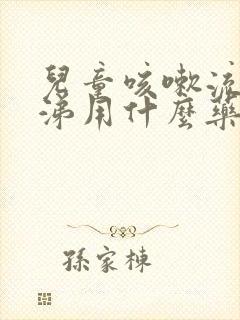 兒童咳嗽流
涕用什麼藥
孫家棟